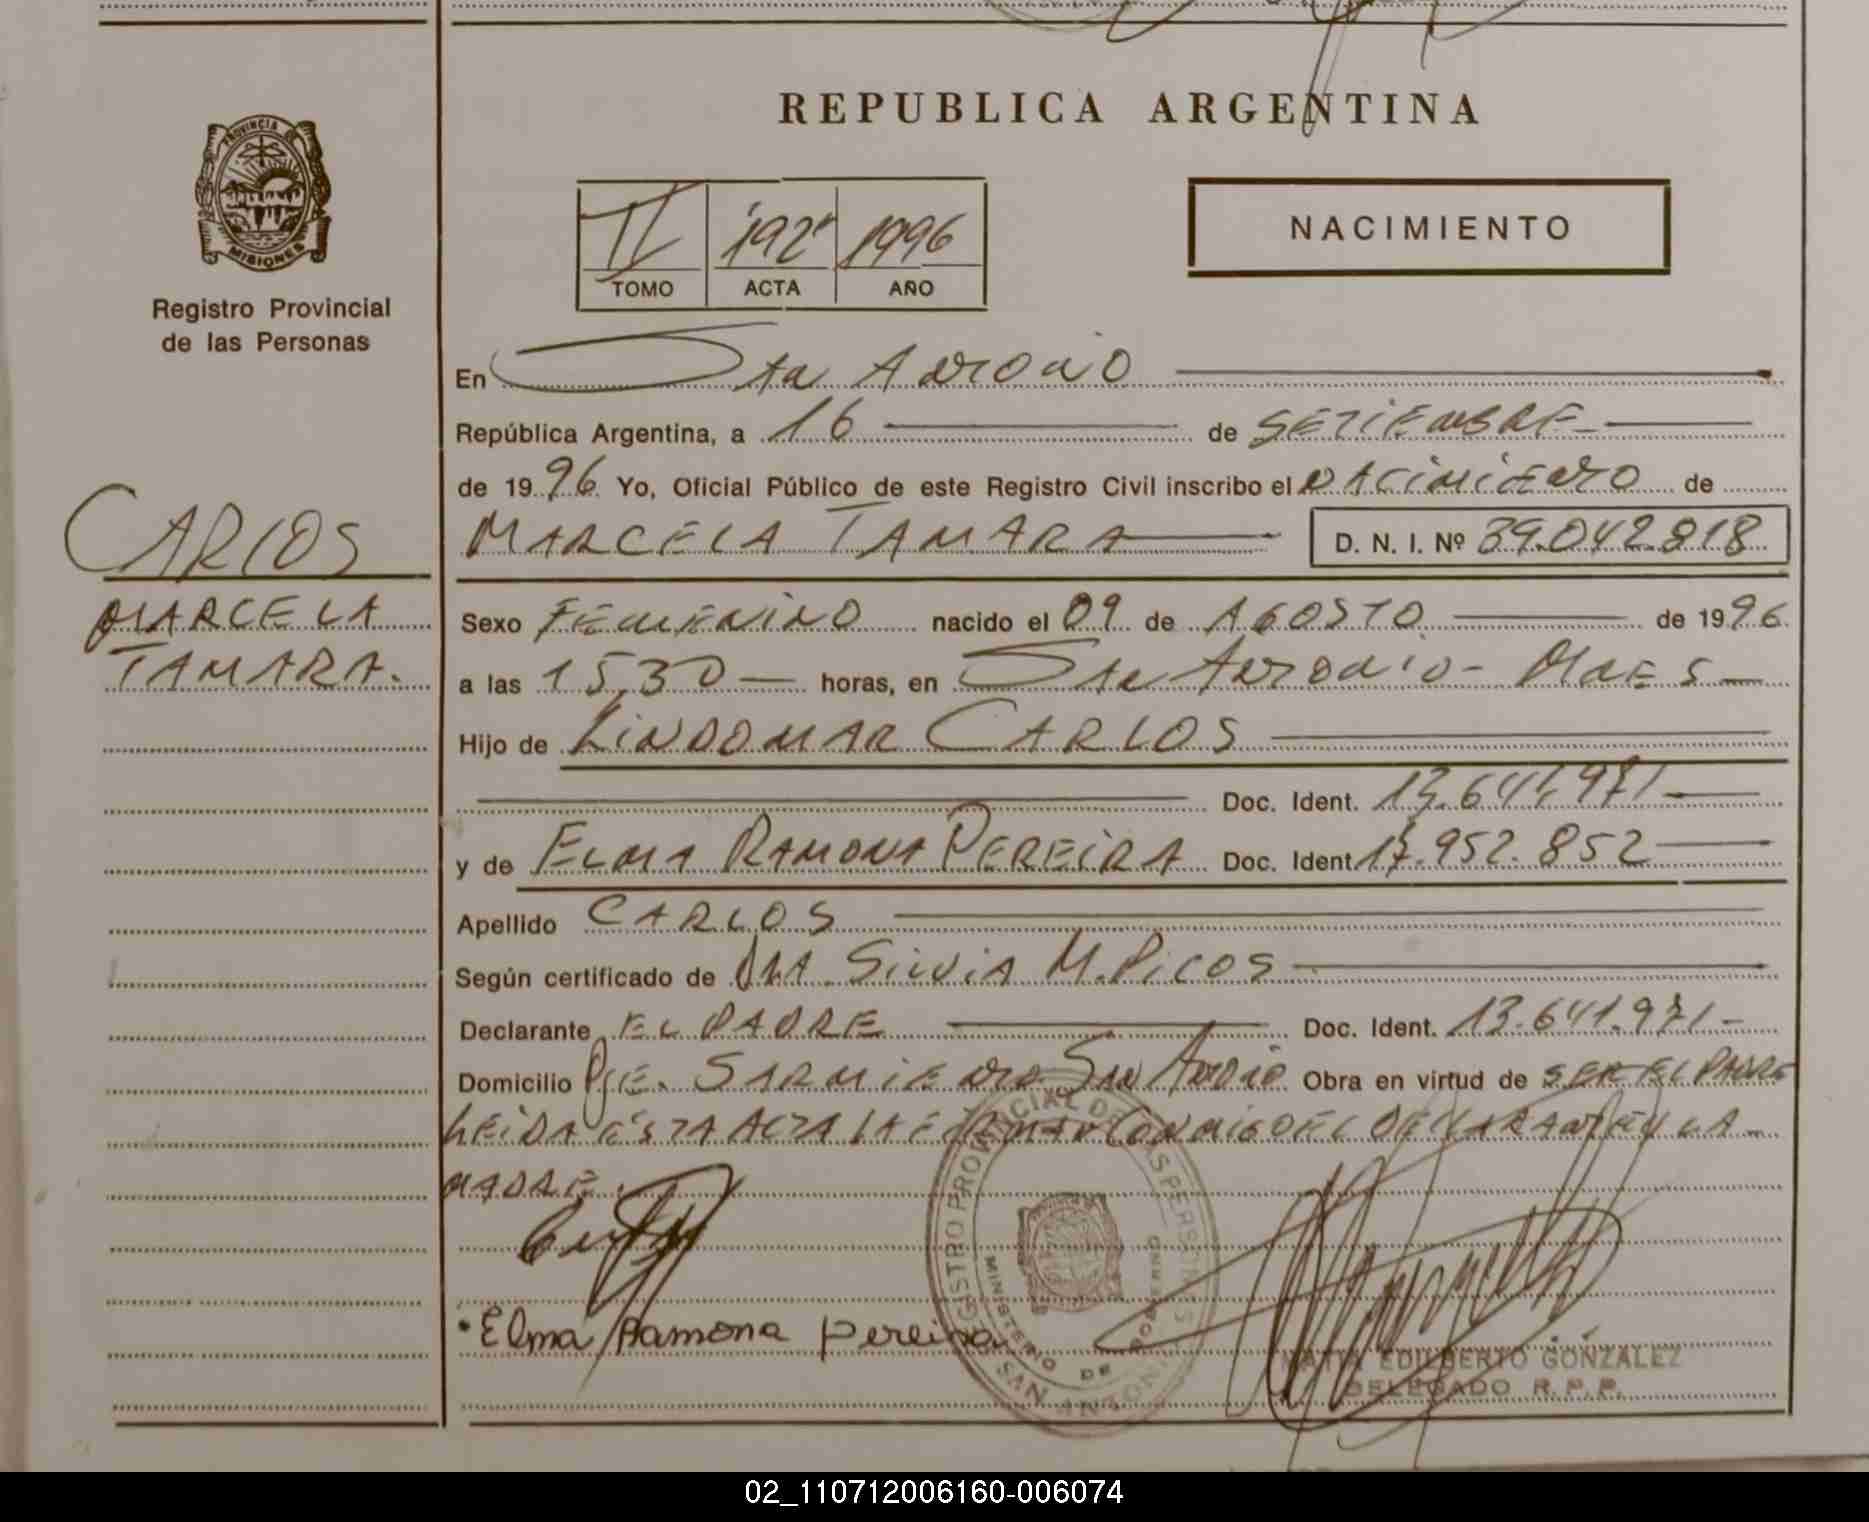 REPUBLICA ARGENTINA
PROVINCIA DE
MISIONES
Registro Provincial
de las Personas
II 192 1996
TOMO ACTA AÑO
NACIMIENTO
En San Antonio
República Argentina, a 16 de SETIEMBRE
de 1996 Yo, Oficial Público de este Registro Civil inscribo el NACIMIENTO de
MARCELA TAMARA D. N. I. Nº 39.042.818
CARLOS
MARCELA
TAMARA.
Sexo FEMENINO nacido el 09 de AGOSTO de 1996
a las 15,30 horas, en San Antonio - Mnes
Hijo de LINDOMAR CARLOS
Doc. Ident. 13.641.971
y de ELMA RAMONA PEREIRA Doc. Ident. 17.952.852
Apellido CARLOS
Según certificado de DRA. SILVIA M. PICOS
Declarante EL PADRE Doc. Ident. 13.641.971-
Domicilio Pje. SARMIENTO SAN ANTONIO Obra en virtud de SER EL PADRE
LEIDA ESTA ACTA LA FIRMAN CONMIGO EL DECLARANTE Y LA
MADRE.
Elma Ramona Pereira
REGISTRO PROVINCIAL DE LAS PERSONAS
MINISTERIO DE GOBIERNO
SAN ANTONIO
EDILBERTO GONZALEZ
DELEGADO R.P.P.
02_110712006160-006074